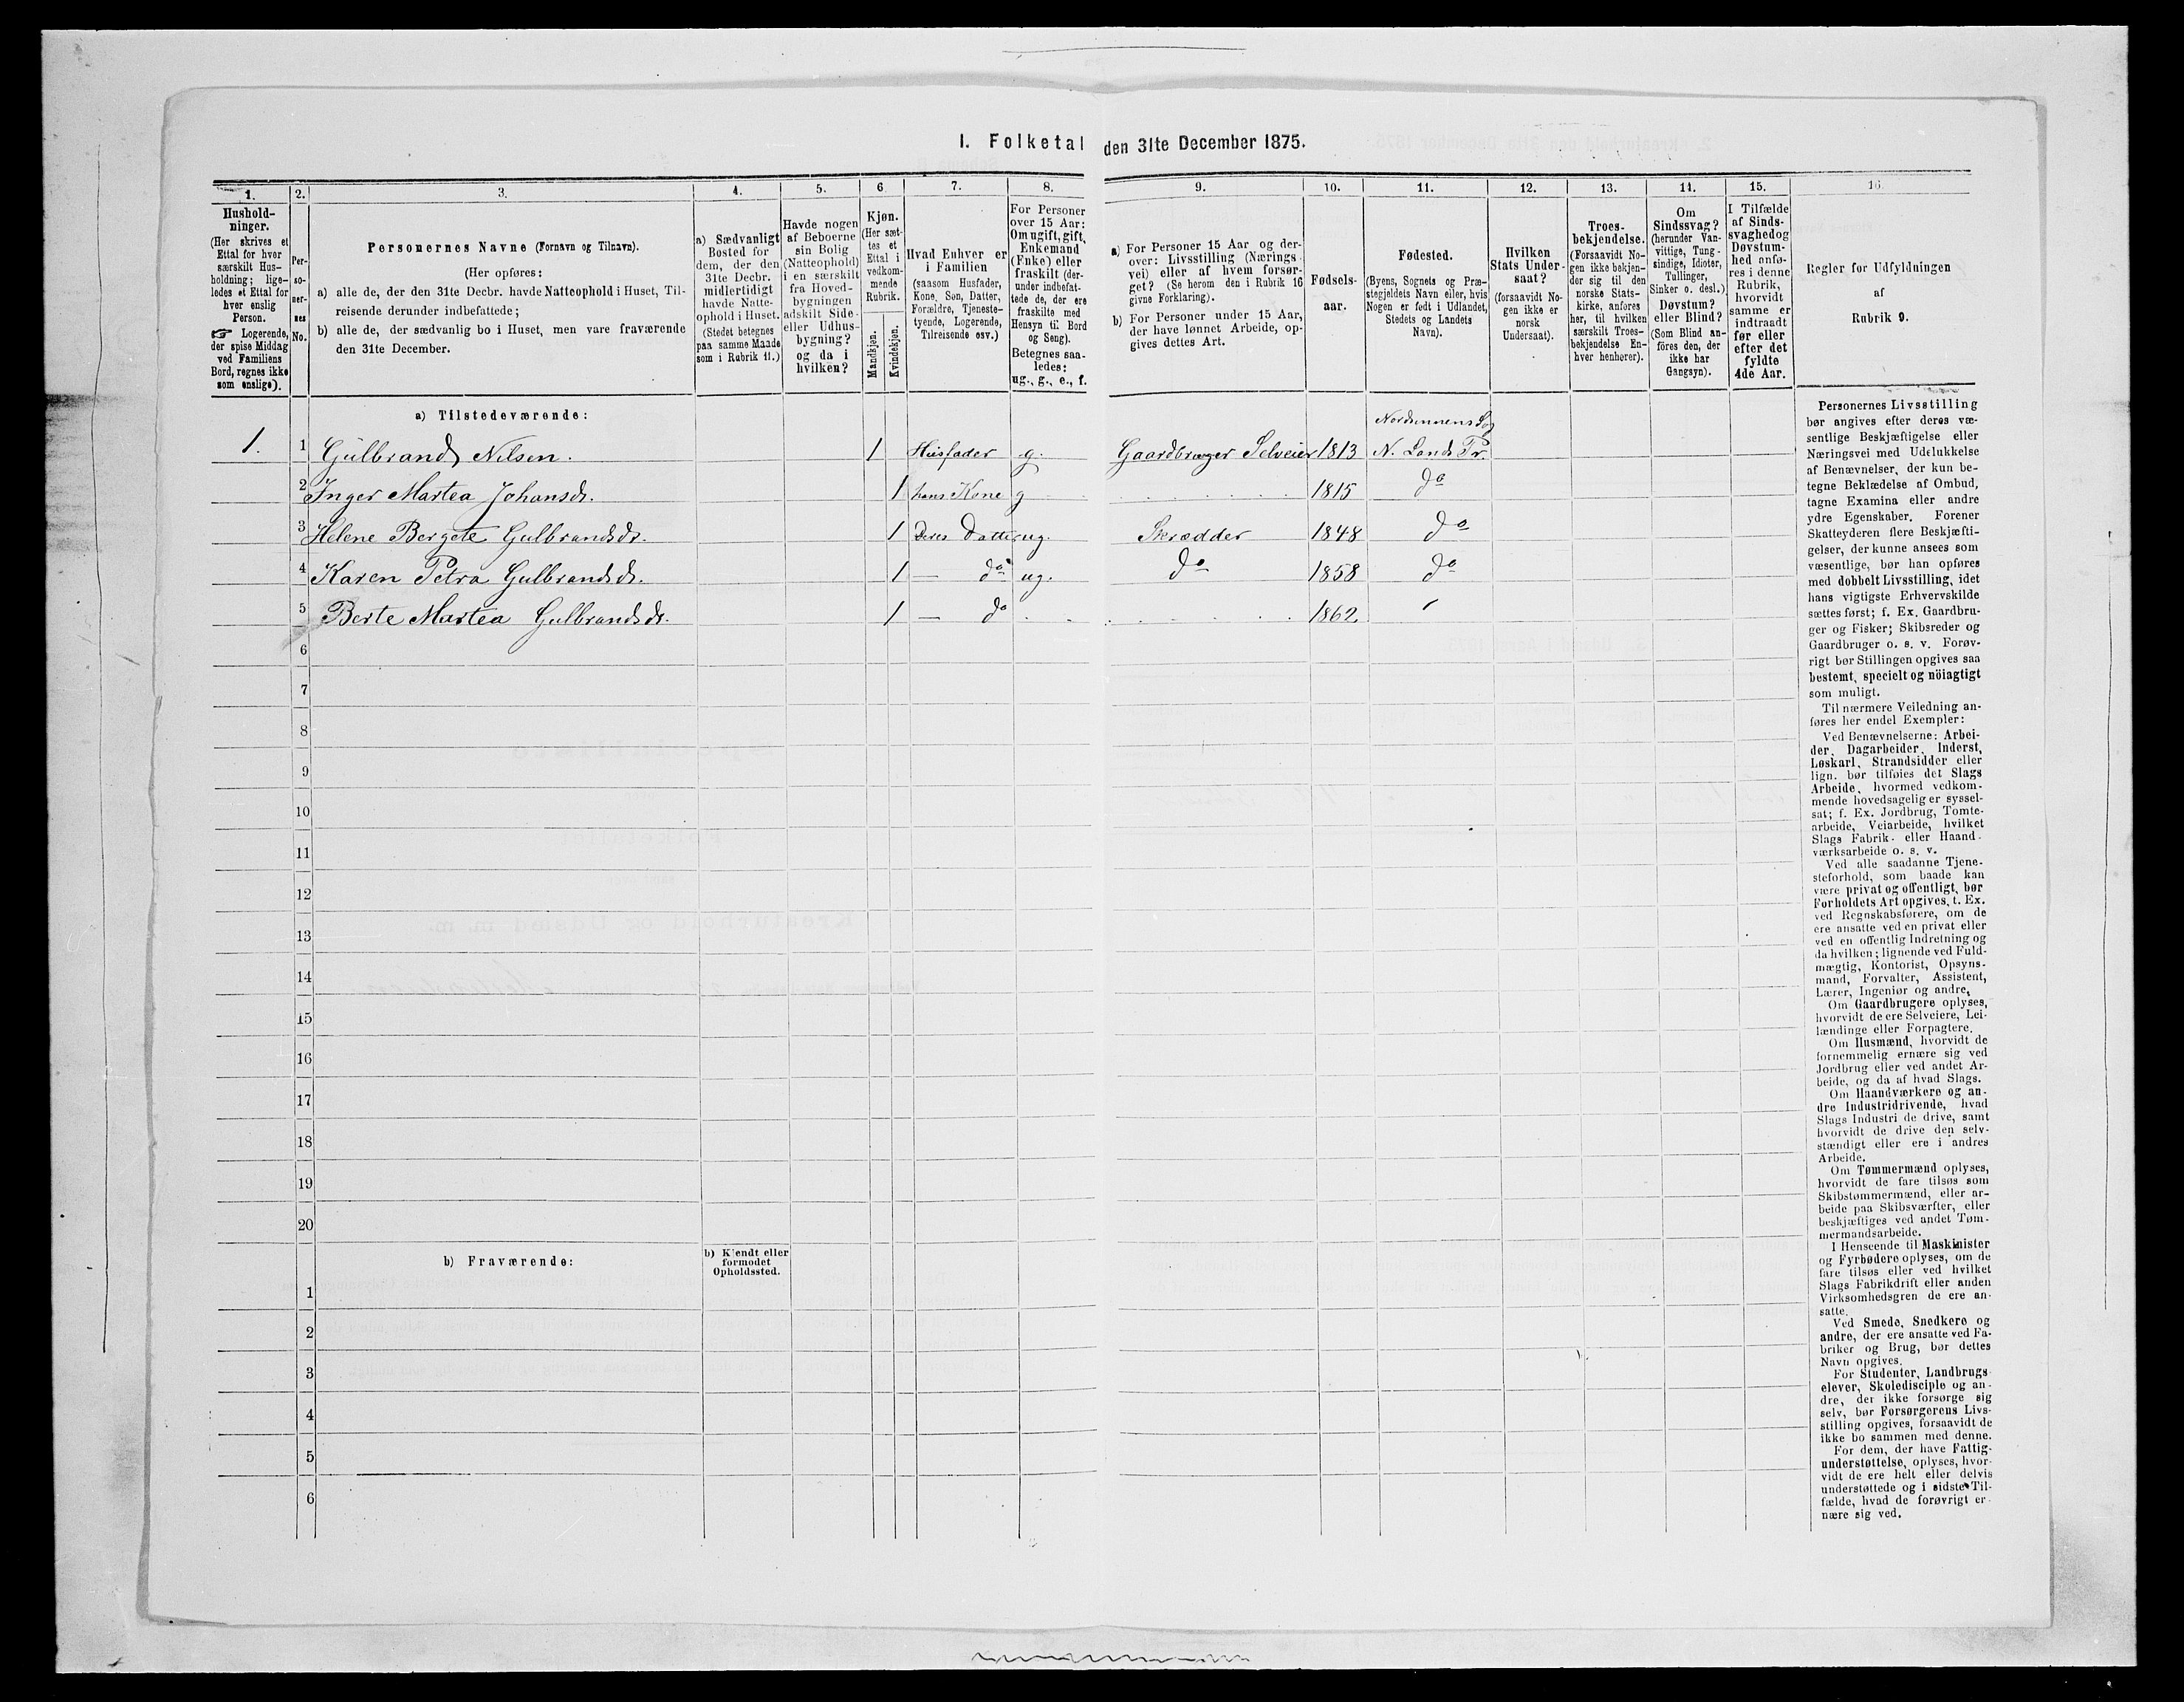 I. Folketal den 31te December 1875.
1.
Hushold-
ninger.
(Her skrives et
Ettal for hver
særskilt Hus-
holdning; lige-
ledes et Ettal for
hver enslig
Person.
☞ Logerende,
der spise Middag
ved Familiens
Bord, regnes ikke
som enslige).
2.
Per-
so-
ner-
nes
No.
3.
Personernes Navne (Fornavn og Tilnavn).
(Her opføres:
a) alle de, der den 31te Decbr. havde Natteophold i Huset, Til-
reisende derunder indbefattede;
b) alle de, der sædvanlig bo i Huset, men vare fraværende
den 31te December.
4.
a) Sædvanligt
Bosted for
dem, der den
31te Decbr.
midlertidigt
havde Natte-
ophold i Huset.
(Stedet betegnes
paa samme Maade
som i Rubrik 11.)
5.
Havde nogen
af Beboerne
sin Bolig
(Natteophold)
i en særskilt
fra Hoved-
bygningen
adskilt Side-
eller Udhus-
bygning?
og da i
hvilken?
6.
Kjøn.
(Her sæt-
tes et
Ettal i
vedkom-
mende
Rubrik.
Mandkjøn.
Kvindekjøn.
7.
Hvad Enhver er
i Familien
(saasom Husfader,
Kone, Søn, Datter,
Forældre, Tjeneste-
tyende, Logerende,
Tilreisende osv.)
8.
For Personer
over 15 Aar:
Om ugift, gift,
Enkemand
(Enke) eller
fraskilt (der-
under indbefat-
tede de, der ere
fraskilte med
Hensyn til Bord
og Seng).
Betegnes saa-
ledes:
ug., g., e., f.
9.
a) For Personer 15 Aar og der-
over: Livsstilling (Nærings-
vei) eller af hvem forsør-
get? (Se herom den i Rubrik 16
givne Forklaring).
b) For Personer under 15 Aar,
der have lønnet Arbeide, op-
gives dettes Art.
10.
Fødsels-
aar.
11.
Fødested.
(Byens, Sognets og Præ-
stegjeldets Navn eller, hvis
Nogen er født i Udlandet,
Stedets og Landets
Navn).
12.
Hvilken
Stats Under-
saat?
(forsaavidt No-
gen ikke er
norsk
Undersaat).
13.
Troes-
bekjendelse.
(Forsaavidt No-
gen ikke bekjen-
der sig til den
norske Stats-
kirke, anføres
her, til hvilken
særskilt Troes-
bekjendelse En-
hver henhører).
14.
Om
Sindssvag?
(herunder Van-
vittige, Tung-
sindige, Idioter,
Tullinger,
Sinker o. desl.)
Døvstum?
eller Blind?
(Som Blind an-
føres den, der
ikke har
Gangsyn).
15.
I Tilfælde
af Sinds-
svaghedog
Døvstum-
hed anfø-
res i denne
Rubrik,
hvorvidt
samme er
indtraadt
før eller
efter det
fyldte
4de Aar.
16.
Regler for Udfyldningen
af
Rubrik 9.
a) Tilstedeværende:
Nordsinnens Sog
1. 1 Gulbrand Nilsen. 1 Husfader g. Gaardbruger Selveier 1813 N. Lands Pr.
2 Inger Martea Johansdr. 1 hans Kone g 1815 do
3 Helene Bergete Gulbrandsdr. 1 Deres Datter ug. Skrædder 1848 do
4 Karen Petra Gulbrandsdr. 1 — do ug. do 1858 do
5 Berte Martea Gulbrandsdr. 1 — do 1862.
6
7
8
9
10
11
12
13
14
15
16
17
18
19
20
b) Fraværende:
b) Kjendt eller
formodet
Opholdssted.
1
2
3
4
5
6
Personernes Livsstilling
bør angives efter deres væ-
sentlige Beskjæftigelse eller
Næringsvei med Udelukkelse
af Benævnelser, der kun be-
tegne Beklædelse af Ombud,
tagne Examina eller andre
ydre Egenskaber. Forener
Skatteyderen flere Beskjæfti-
gelser, der kunne ansees som
væsentlige, bør han opføres
med dobbelt Livsstilling, idet
hans vigtigste Erhvervskilde
sættes først; f. Ex. Gaardbru-
ger og Fisker; Skibsreder og
Gaardbruger o. s. v. Forøv-
rigt bør Stillingen opgives saa
bestemt, specielt og nöiagtigt
som muligt.
Til nærmere Veiledning an-
føres her endel Exempler:
Ved Benævnelserne: Arbei-
der, Dagarbeider, Inderst,
Løskarl, Strandsidder eller
lign. bør tilføies det Slags
Arbeide, hvormed vedkom-
mende hovedsagelig er syssel-
sat; f. Ex. Jordbrug, Tomte-
arbeide, Veiarbeide, hvilket
Slags Fabrik- eller Haand-
værksarbeide o. s. v.
Ved alle saadanne Tjene-
steforhold, som baade kan
være privat og offentligt, bør
Forholdets Art opgives, t. Ex.
ved Regnskabsførere, om de
ere ansatte ved en privat eller
ved en offentlig Indretning og
da hvilken; lignende ved Fuld-
mægtig, Kontorist, Opsyns-
mand, Forvalter, Assistent,
Lærer, Ingeniør og andre.
Om Gaardbrugere oplyses,
hvorvidt de ere Selveiere, Lei-
lændinge eller Forpagtere.
Om Husmænd, hvorvidt de
fornemmelig ernære sig ved
Jordbrug eller ved andet Ar-
beide, og da af hvad Slags.
Om Haandværkere og an-
dre Industridrivende, hvad
Slags Industri de drive, samt
hvorvidt de drive den selv-
stændigt eller ere i andres
Arbeide.
Om Tømmermænd oplyses,
hvorvidt de fare tilsøs som
Skibstømmermænd, eller ar-
beide paa Skibsværfter, eller
beskjæftiges ved andet Tøm-
mermandsarbeide.
I Henseende til Maskinister
og Fyrbødere oplyses, om de
fare tilsøs eller ved hvilket
Slags Fabrikdrift eller anden
Virksomhedsgren de ere an-
satte.
Ved Smede, Snedkere og
andre, der ere ansatte ved Fa-
briker og Brug, bør dettes
Navn opgives.
For Studenter, Landbrugs-
elever, Skoledisciple og an-
dre, der ikke forsørge sig
selv, bør Forsørgerens Livs-
stilling opgives, forsaavidt de
ikke bo sammen med denne.
For dem, der have Fattig-
understøttelse, oplyses, hvor-
vidt de ere helt eller delvis
understøttede og i sidste Til-
fælde, hvad de forøvrigt er-
nære sig ved.